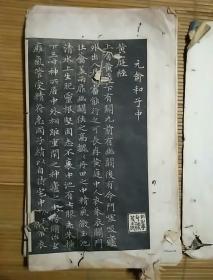 元俞和子中
黃庭經
上有黃庭下有關元前有幽關後有命門噓吸廬
外出入丹田審能行之可長存黃庭中人衣朱衣關門
壯籥蓋兩扉幽關俠之高巍巍丹田之中精氣微玉池
清水上生肥靈根堅志不衰中池有士服赤朱橫
下三寸神所居中外相距重閉之神廬之中務修治玄
廱氣管受精符急固子精以自持宅中有士常衣